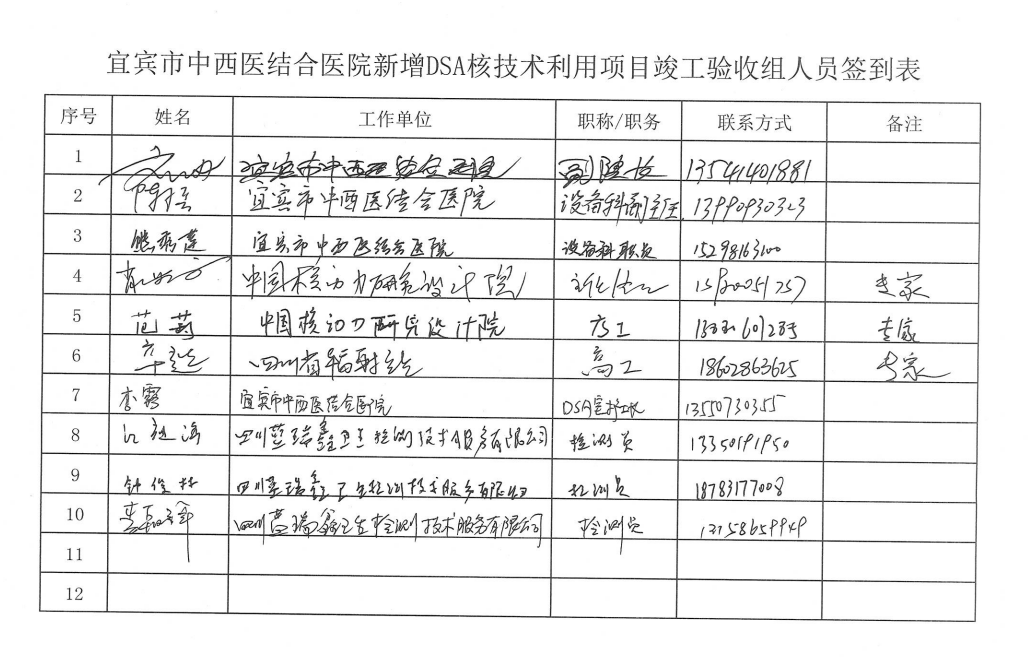 宜宾市中西医结合医院新增DSA核技术利用项目竣工验收组人员签到表
序号 姓名 工作单位 职称/职务 联系方式 备注
1 宜宾市中西医结合医院 副院长 13541401881
2 宜宾市中西医结合医院 设备科副主任 13990930323
3 熊秀莲 宜宾市中西医结合医院 设备科职员 15298163100
4 中国核动力研究设计院 专家
5 范茜 中国核动力研究设计院 高工 专家
6 四川省辐射 高工 18602863625 专家
7 李霞 宜宾市中西医结合医院 DSA室护士长 13550730355
8 四川蓝瑞鑫卫生检测技术服务有限公司 检测员 13350191950
9 钟俊林 四川蓝瑞鑫卫生检测技术服务有限公司 检测员 18783177008
10 四川蓝瑞鑫卫生检测技术服务有限公司 检测员
11
12